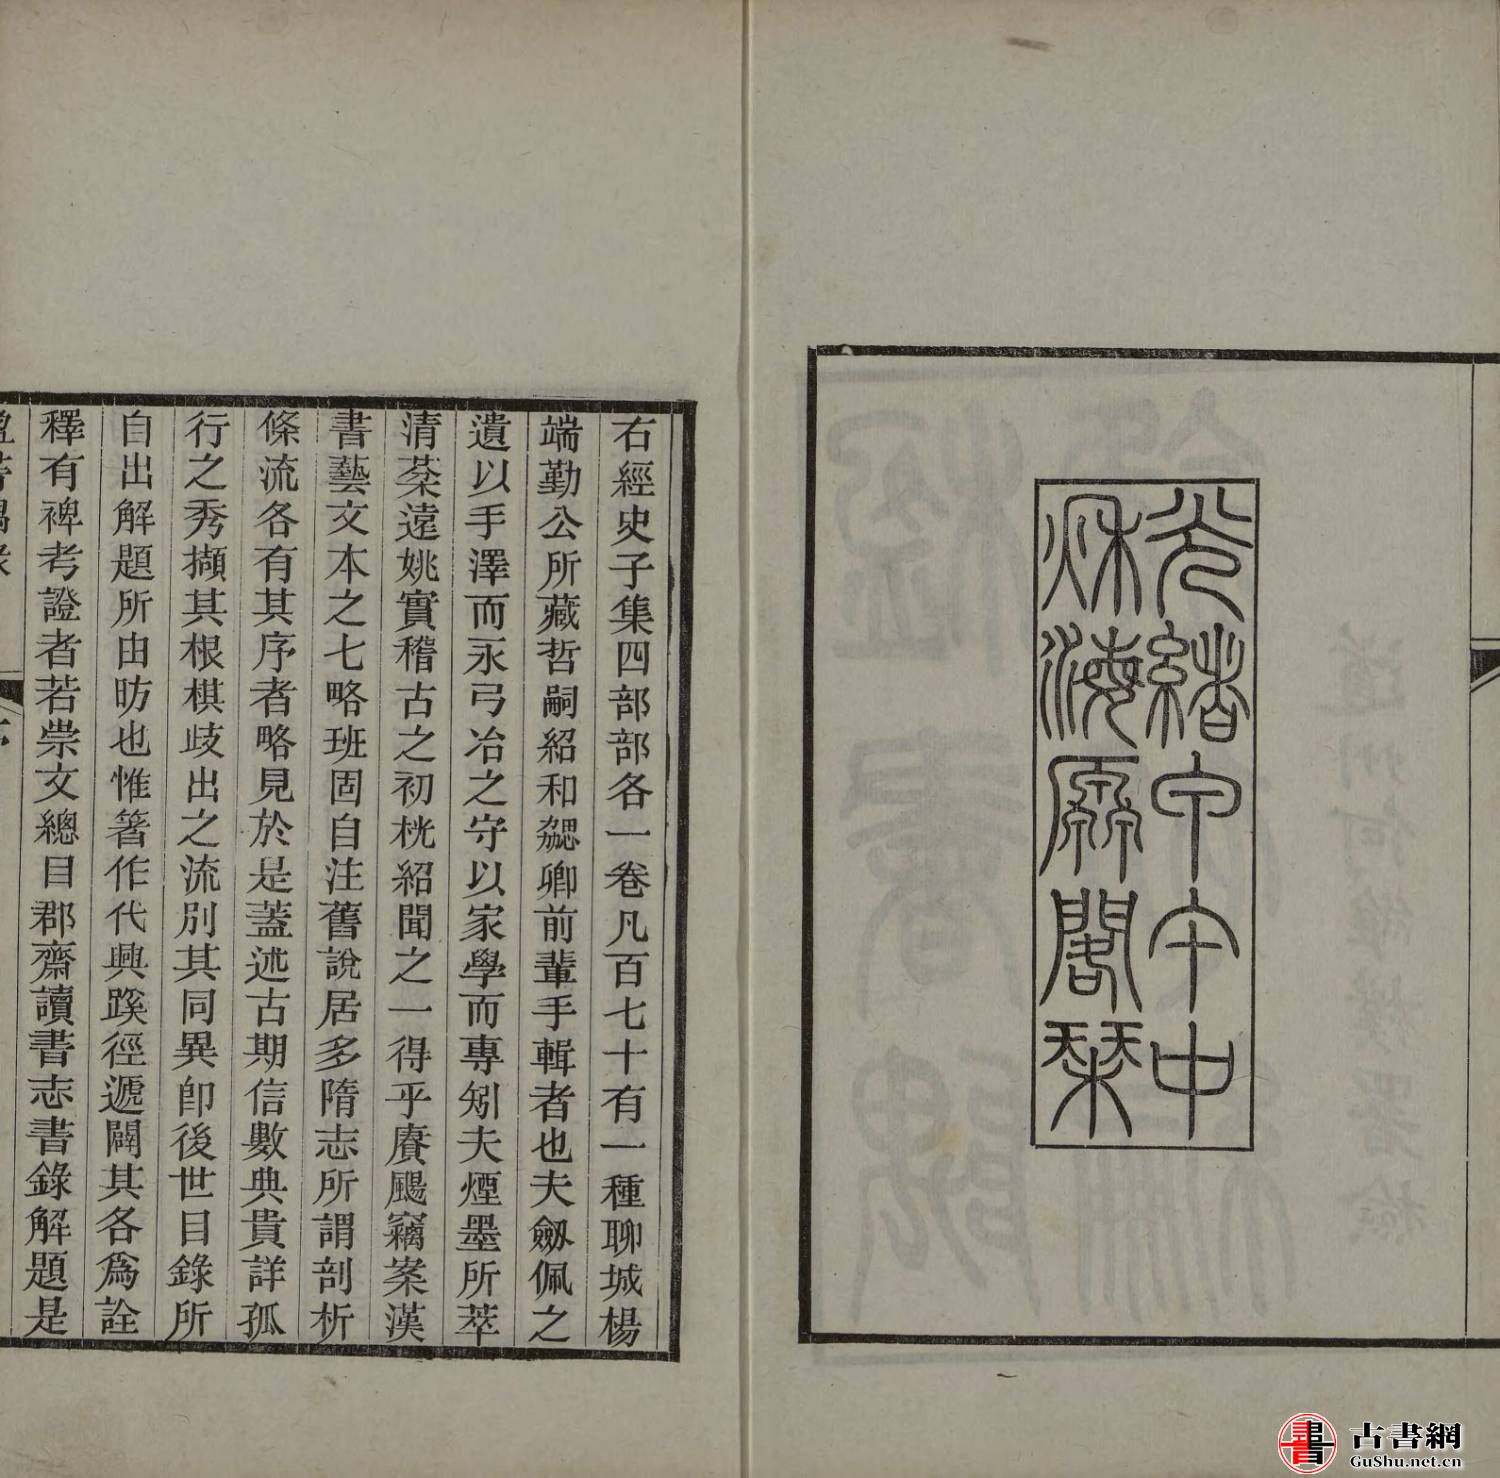 光緒甲午中
秌海源閣栞
右經史子集四部部各一卷凡百七十有一種聊城楊
端勤公所藏哲嗣紹和勰卿前輩手輯者也夫劔佩之
遺以手澤而永弓冶之守以家學而專矧夫煙墨所萃
清棻遠姚實稽古之初桄紹聞之一得乎賡颺竊案漢
書藝文本之七略班固自注舊說居多隋志所謂剖析
條流各有其序者略見於是蓋述古期信數典貴詳孤
行之秀擷其根棋歧出之流別其同異卽後世目錄所
自出解題所由昉也惟箸作代興蹊徑遞闢其各爲詮
釋有裨考證者若崇文總目郡齋讀書志書錄解題是
道州何維樸署檢
古書網
GuShu.net.cn